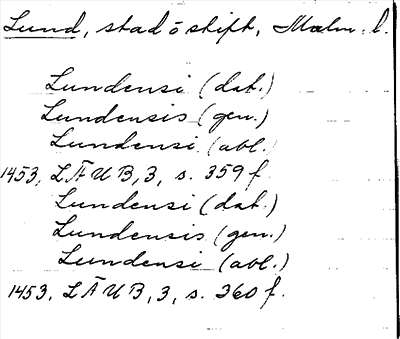 Lund, stad o stift, Malm. l.
Lundensi (dat.)
Lundensis (gen.)
Lundensi (abl.)
1453, LÄUB, 3, s. 359 f.
Lundensi (dat.)
Lundensis (gen.)
Lundensi (abl.)
1453, LÄUB, 3, s. 360 f.